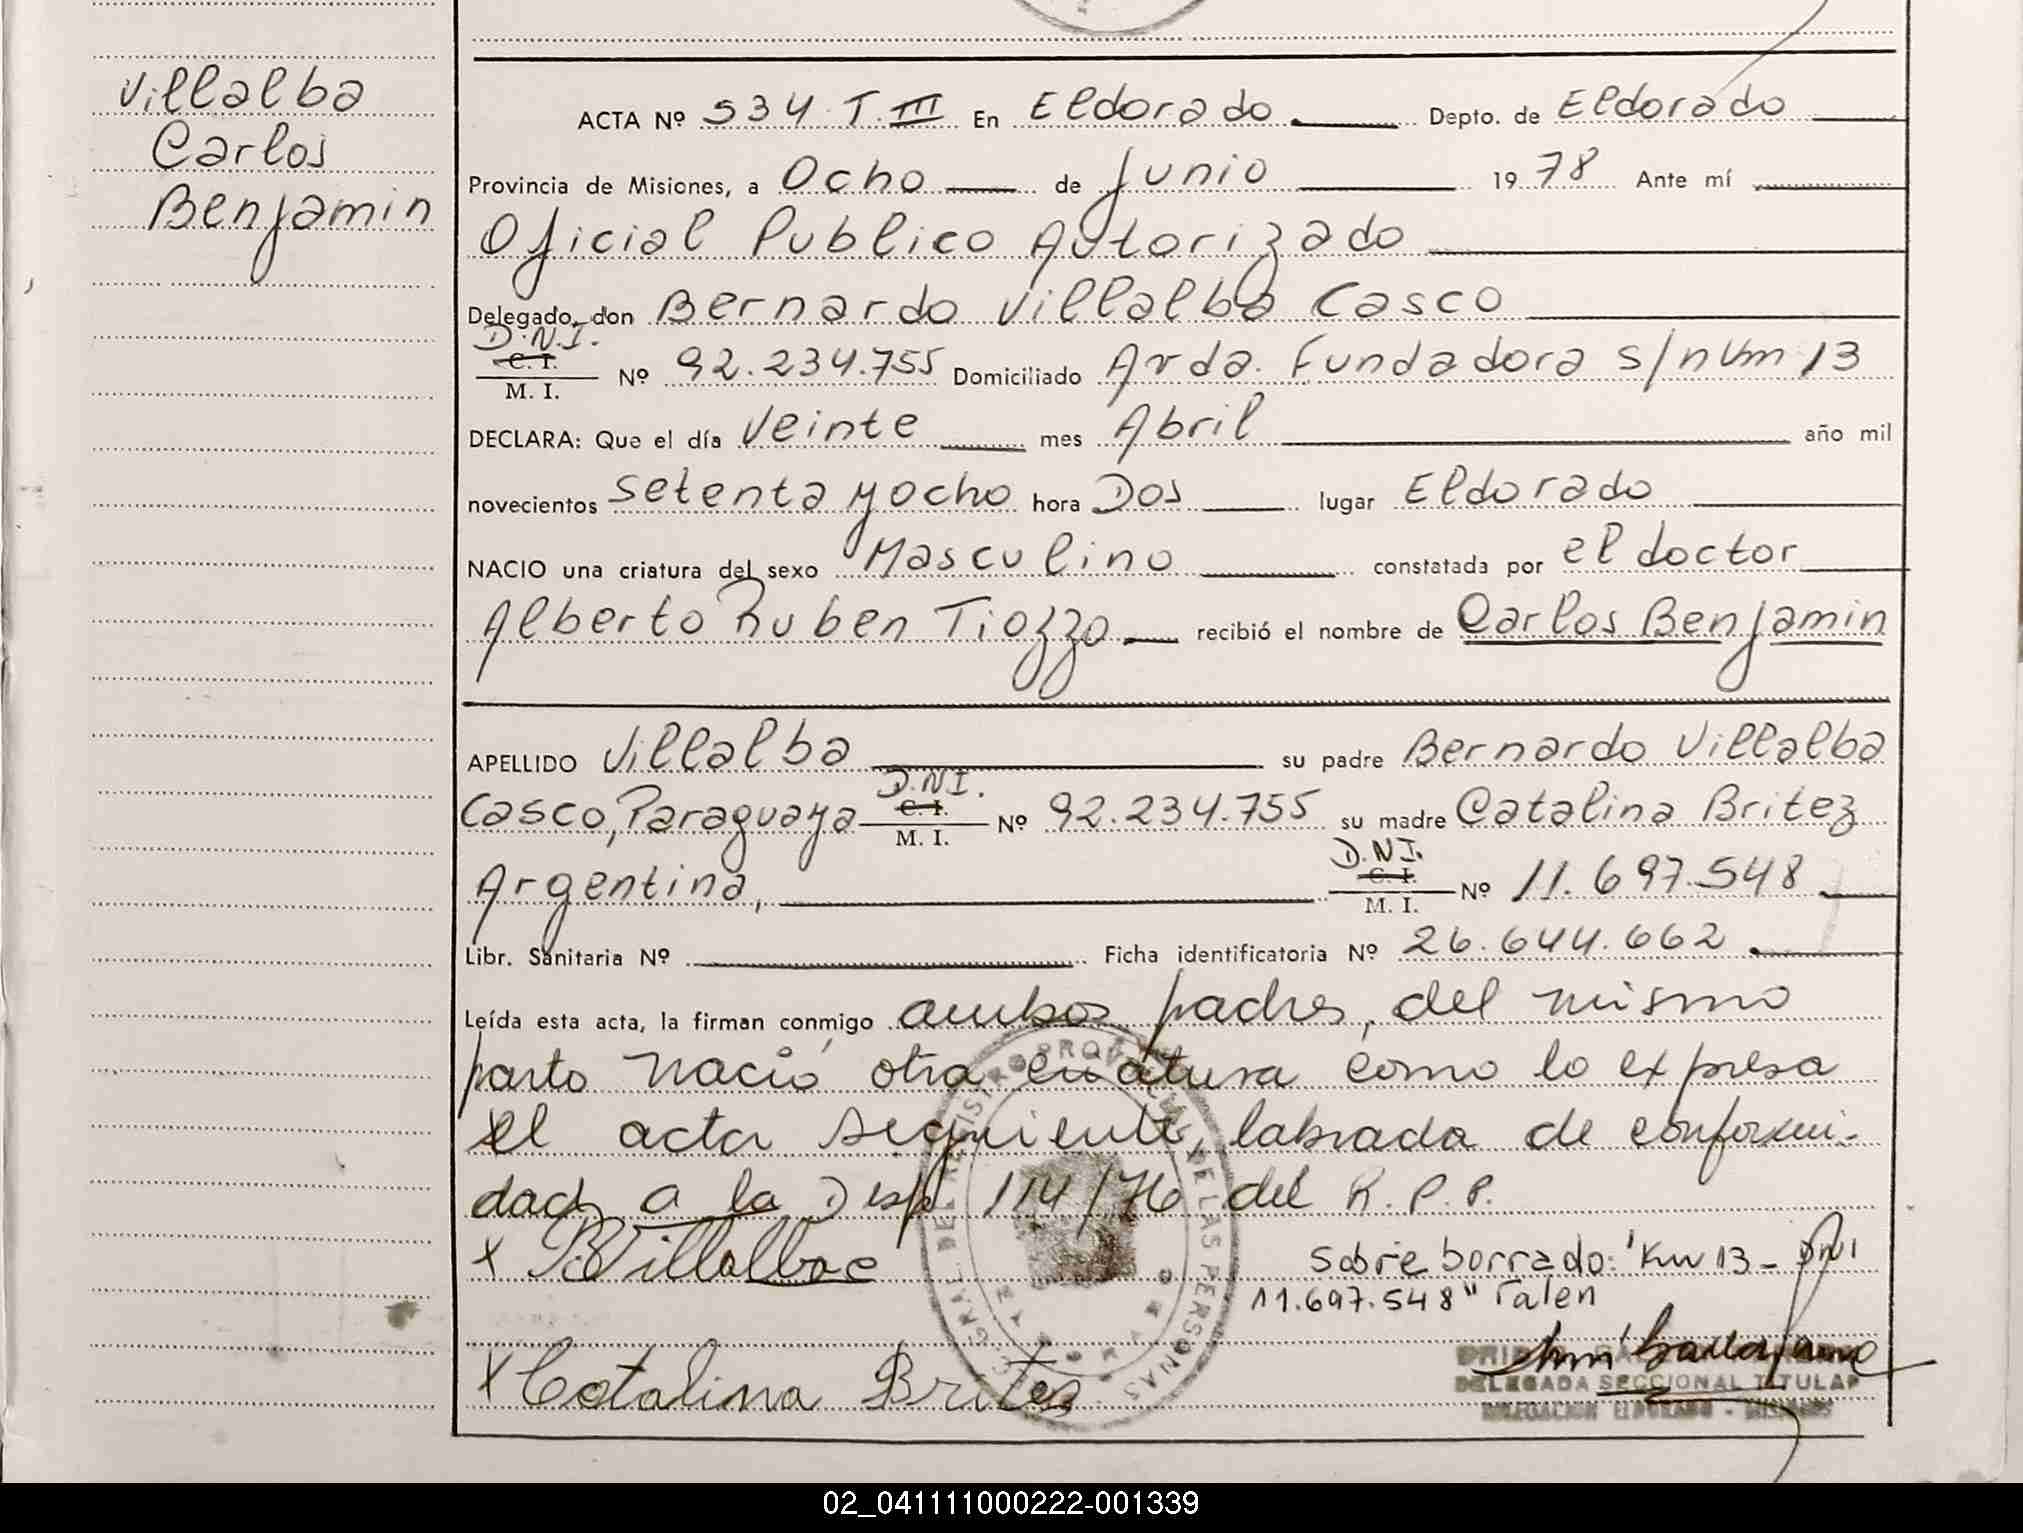 Villalba
Carlos
Benjamin
ACTA Nº 534 T. III En Eldorado Depto. de Eldorado
Provincia de Misiones, a Ocho de Junio 1978 Ante mí
Oficial Publico Autorizado
Delegado, don Bernardo Villalba Casco
D.N.I.
C. I.
M. I. Nº 92.234.755 Domiciliado Avda. Fundadora s/num 13
DECLARA: Que el día Veinte mes Abril año mil
novecientos setenta y ocho hora Dos lugar Eldorado
NACIO una criatura del sexo Masculino constatada por el doctor
Alberto Ruben Tiozzo recibió el nombre de Carlos Benjamin
APELLIDO Villalba su padre Bernardo Villalba
Casco, Paraguaya D.N.I. C. I. M. I. Nº 92.234.755 su madre Catalina Britez
Argentina, D.N.I. C. I. M. I. Nº 11.697.548
Libr. Sanitaria Nº Ficha identificatoria Nº 26.644.662
Leída esta acta, la firman conmigo ambos padres, del mismo
parto nació otra criatura como lo expresa
el acta siguiente, labrada de conformi-
dad a la Disp. 114/76 del R.P.P.
x BVillalba c
Sobre borrado: "Km 13 - DNI
11.697.548" Valen
x Catalina Britez
DELEGADA SECCIONAL TITULAR
DELEGACION ELDORADO - MISIONES
REGISTRO PROVINCIAL DE LAS PERSONAS
02_041111000222-001339